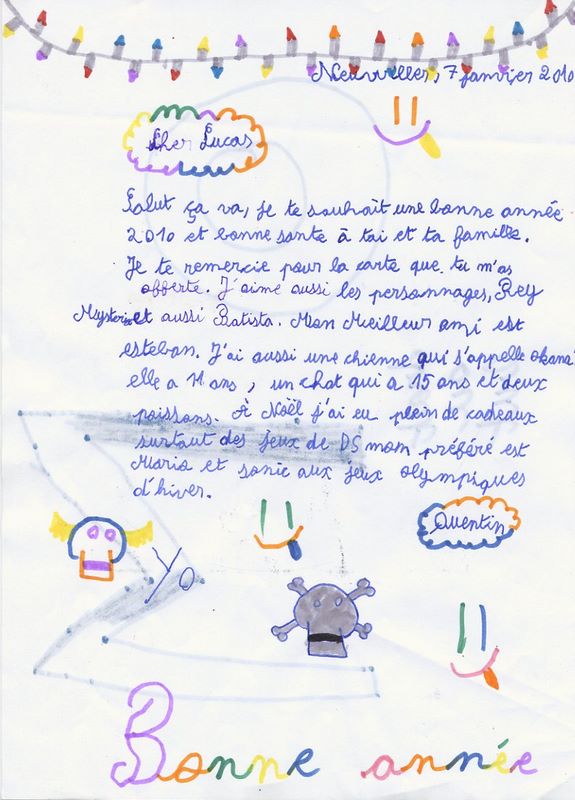 Neuvilles, 7 janvier 2010
Cher Lucas
Salut ça va, je te souhait une bonne année
2010 et bonne sante à tai et ta famille.
Je te remercie pour la carte que tu m'as
offerte. J'aime aussi les personnages, Rey
Mysterio et aussi Batista. Mon Meilleur ami est
esteban. J'ai aussi une chienne qui s'appelle okana
elle a 11 ans, un chat qui a 15 ans et deux
poissons. À Noël j'ai eu plein de cadeaux
surtout des jeux de DS mom préféré est
Mario et sonic aux jeux olympiques
d'hiver.
Quentin
Yo
Bonne année